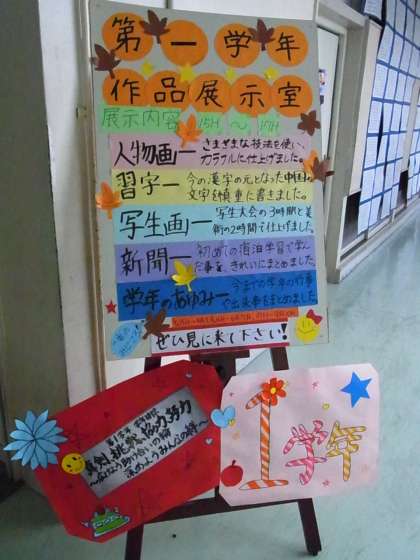 第一学年
作品展示室
展示内容 15H～17H
人物画ーさまざまな技法を使い、
カラフルに仕上げました。
習字ー今の漢字の元となった中国の
文字を慎重に書きました。
写生画ー写生大会の3時間と美
術の2時間で仕上げました。
新聞ー初めての宿泊学習で学ん
だ事を、きれいにまとめました。
学年のあゆみー今までの学年の行事
や出来事をまとめました
ぜひ見に来て下さい!
真剣 挑戦 協力 努力
1学年